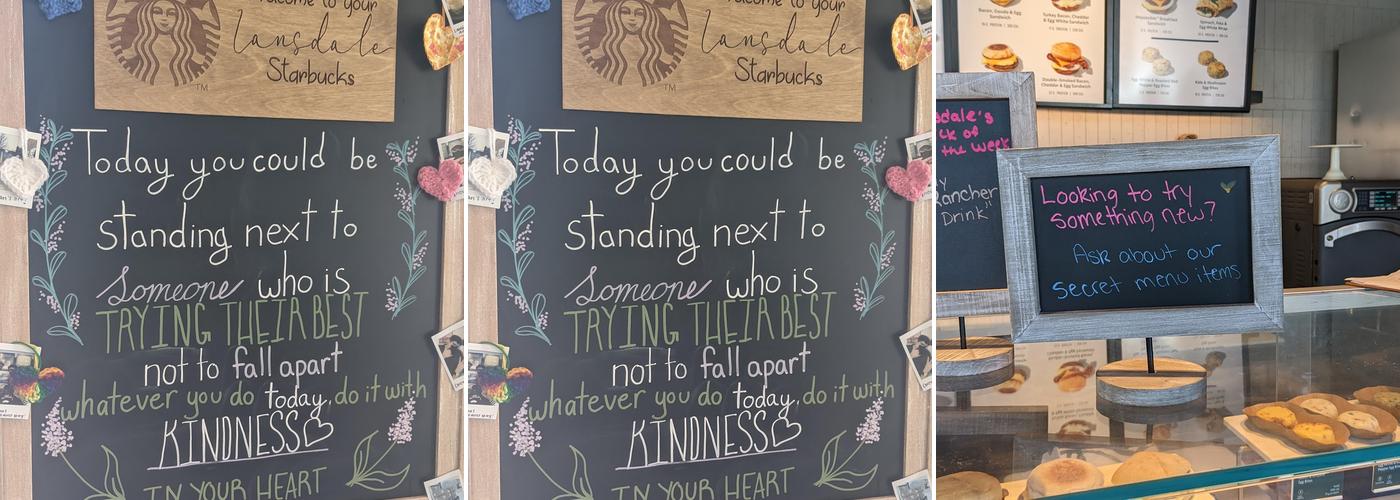 Welcome to your
Lansdale
Starbucks
TM
Today you could be
standing next to
Someone who is
TRYING THEIR BEST
not to fall apart
whatever you do today, do it with
KINDNESS
IN YOUR HEART
Welcome to your
Lansdale
Starbucks
TM
Today you could be
standing next to
Someone who is
TRYING THEIR BEST
not to fall apart
whatever you do today, do it with
KINDNESS
IN YOUR HEART
Bacon, Gouda & Egg
Sandwich
Turkey Bacon, Cheddar
& Egg White Sandwich
Impossible™ Breakfast
Sandwich
Spinach, Feta &
Egg White Wrap
Double-Smoked Bacon,
Cheddar & Egg Sandwich
Egg White & Roasted Red
Pepper Egg Bites
Kale & Mushroom
Egg Bites
sdale's
ck of
the week
Rancher
Drink"
Looking to try
something new?
Ask about our
secret menu items